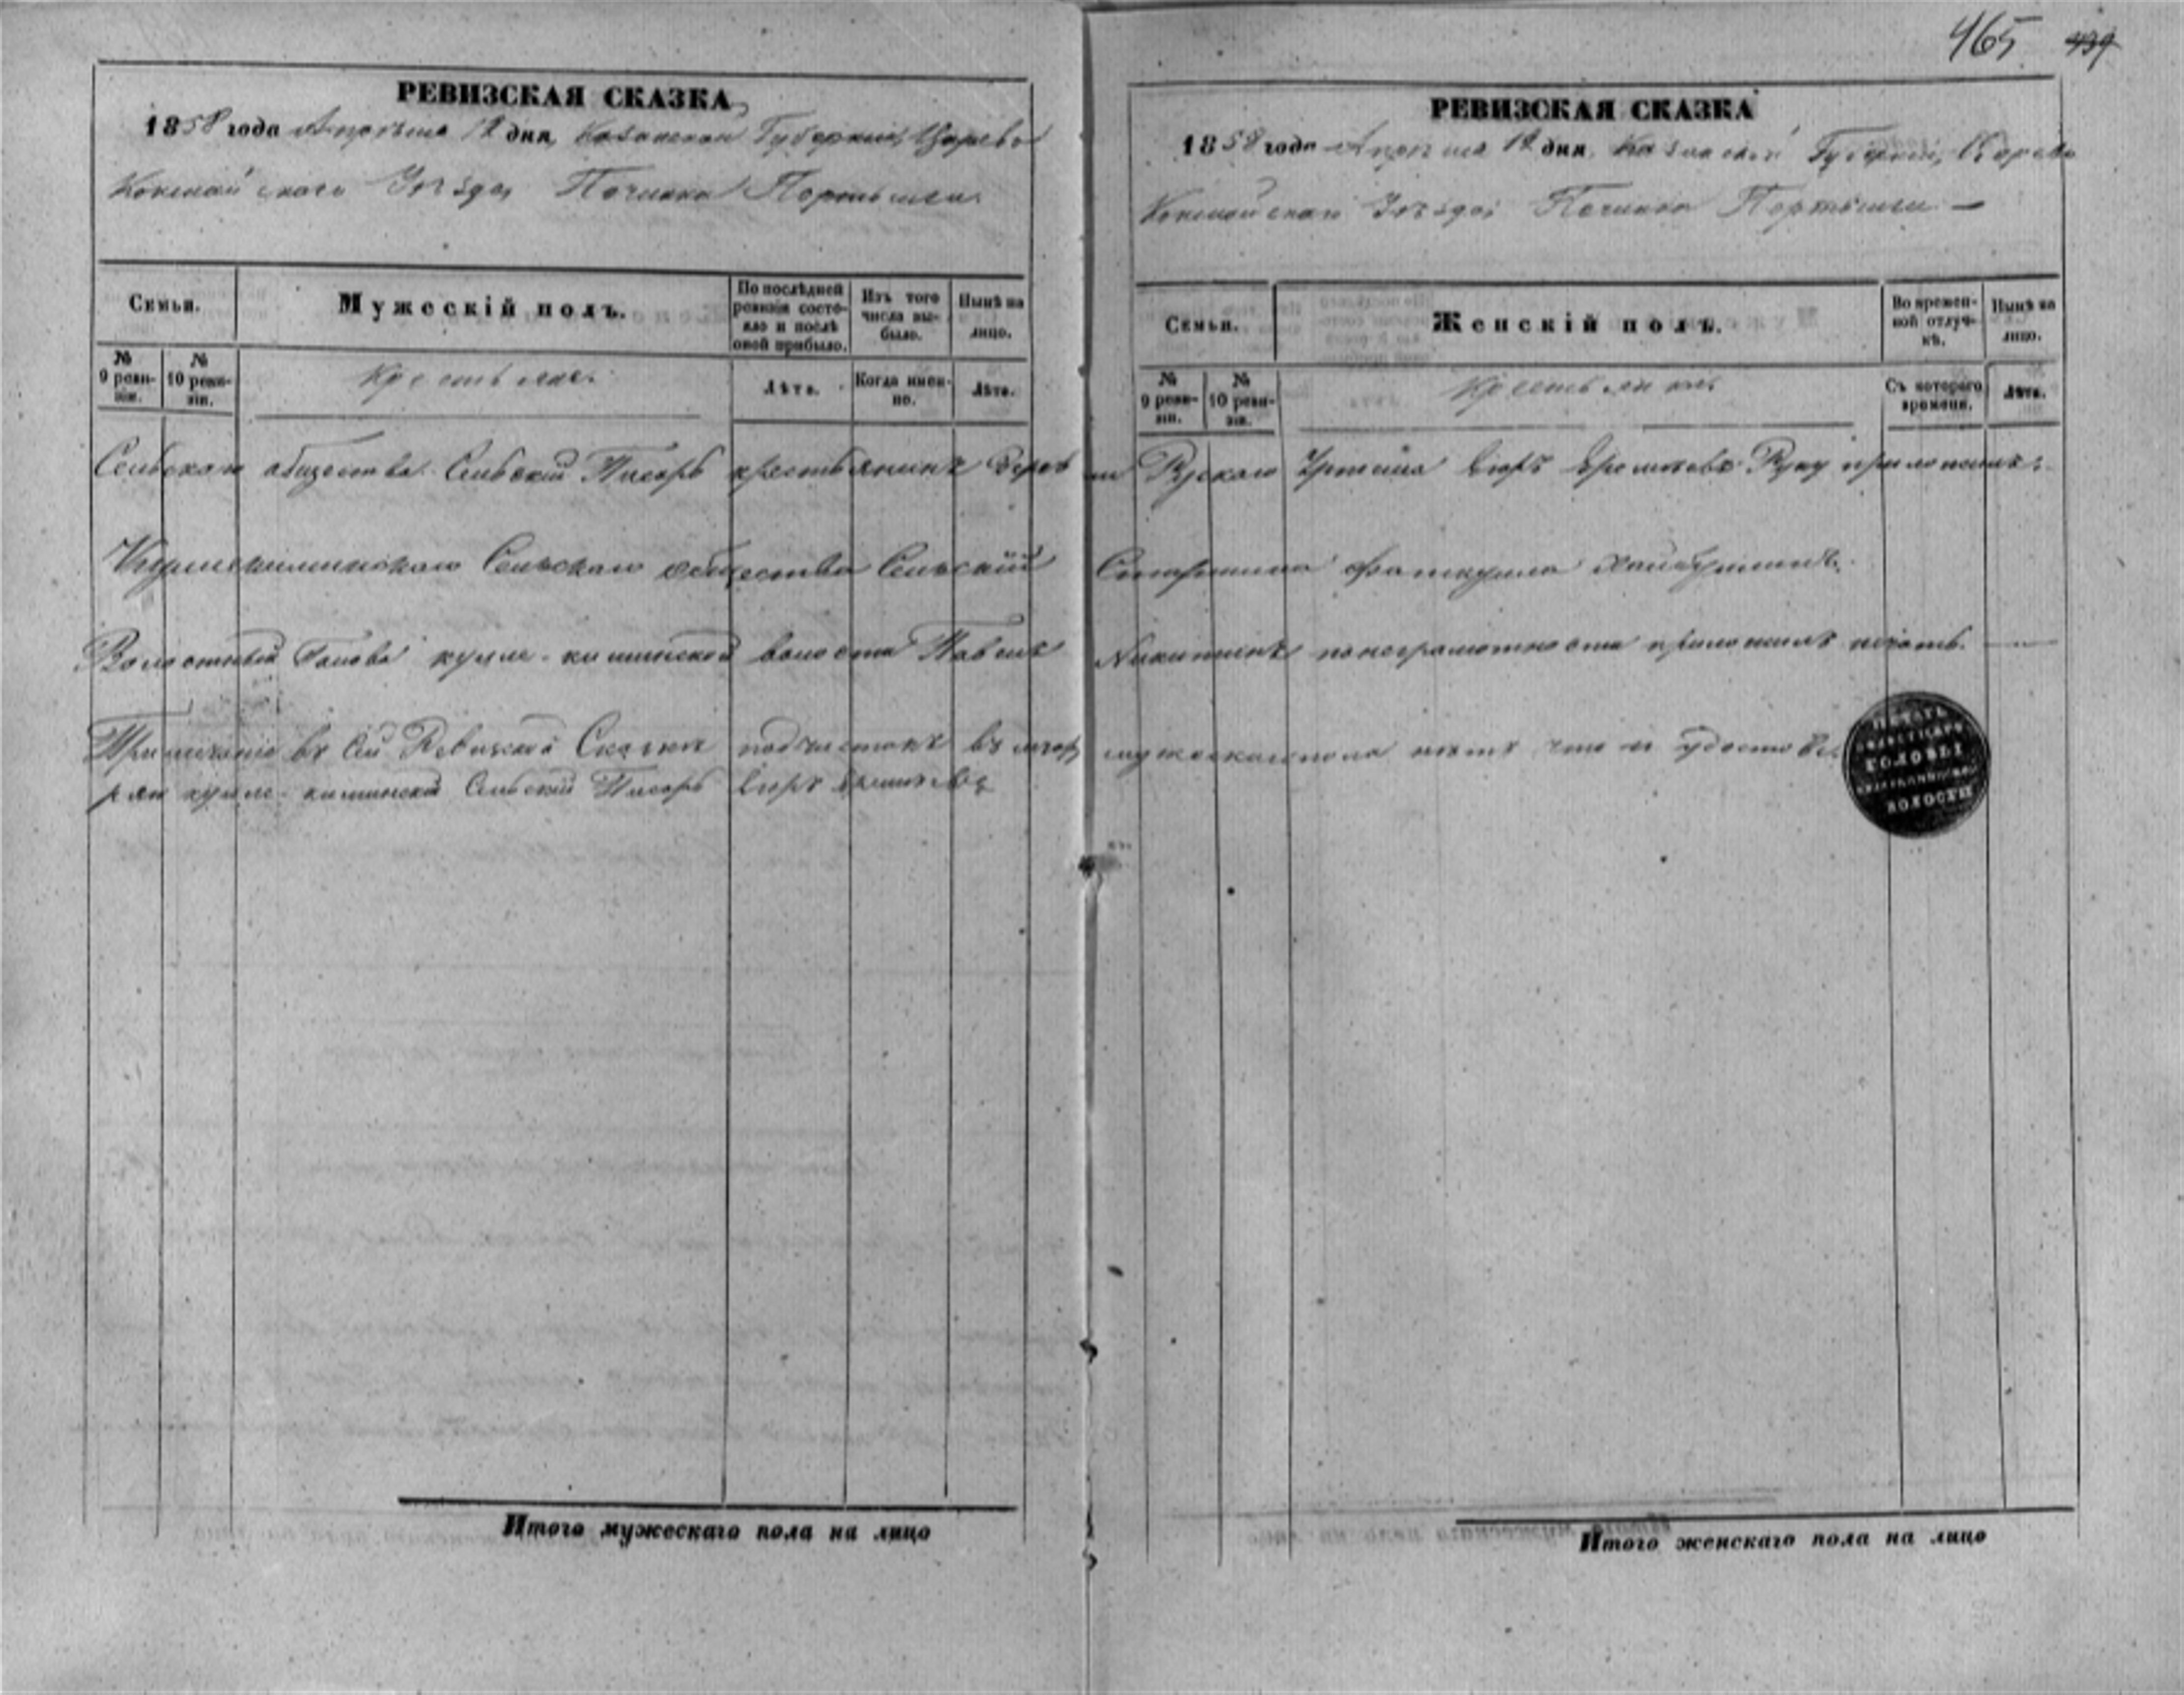 465 439
РЕВИЗСКАЯ СКАЗКА
1858 года Апрѣля 12 дня, Казанской Губерніи, Царево
Кокшайскаго Уѣзда, Починка Портянги
Семьи.
Мужескій полъ.
По послѣдней ревизіи состояло и послѣ оной прибыло.
Изъ того числа выбыло.
Нынѣ на лицо.
№ 9 ревизіи.
№ 10 ревизіи.
Крестьяне.
Лѣта.
Когда именно.
Лѣта.
РЕВИЗСКАЯ СКАЗКА
1858 года Апрѣля 12 дня, Казанской Губерніи, Царево
Кокшайскаго Уѣзда, Починка
Семьи.
Женскій полъ.
Во временной отлучкѣ.
Нынѣ на лицо.
№ 9 ревизіи.
№ 10 ревизіи.
Крестьянки
Съ котораго времени.
Лѣта.
Сельскаго общества Сельскій Писарь крестьянинъ дерев ни Рускаго Уртема Руку приложилъ.
Сельскаго общества Сельскій Старшина
Волостный Голова кулле-киминской волости Павелъ Никитинъ по неграмотности приложилъ печать.
Примечаніе въ сей Ревизской Сказки подчистокъ въ мужескаго пола нѣтъ что и удостове
ряю кулле-киминской Сельскій Писарь
ПЕЧАТЬ
ВОЛОСТНАГО
ГОЛОВЫ
ВОЛОСТИ
Итого мужескаго пола на лицо
Итого женскаго пола на лицо